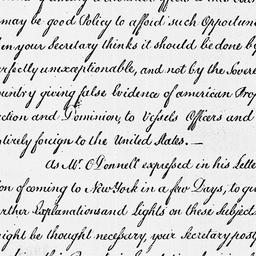 may be good Policy to afford such Opportun
your Secretary thinks it should be done by
rfectly unexceptionable, and not by the Sover
ountry giving false evidence of american Prop
ction and Dominion, to Vessels Officers and
tirely foreign to the United States. —
As Mr. O'Donnell expressed in his Lette
on of coming to New York in a few Days, to gi
rther Explanations and Lights on these Subjects
ight be thought necessary, your Secretary post